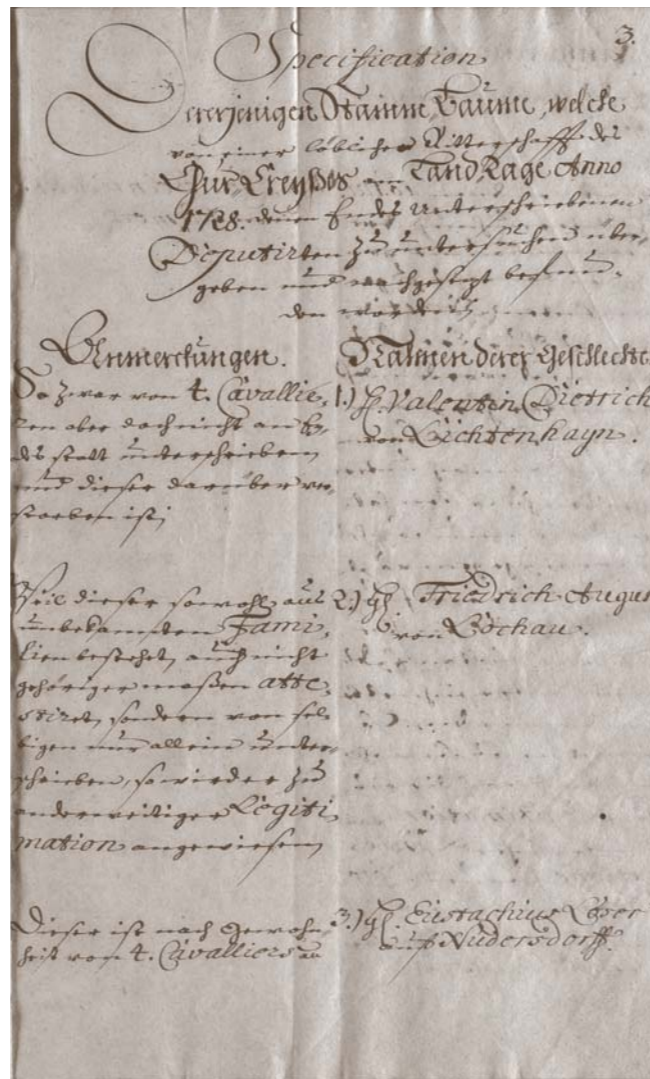 3.
Specification
Dererjenigen Stamm Bäume, welche
von einer löblichen Ritterschafft des
Chur Creyßes am Land Tage Anno
1728. denen Endes Unterschriebenen
Deputirten zu untersuchen über-
geben und nachgesezt befun-
den worden
Anmerckungen.
So zwar von 4. Cavallie-
ren aber doch nicht an Ey-
des statt unterschrieben
und dieser darüber ver-
storben ist,
Weil dieser sowohl aus
unbekannten Fami-
lien bestehet, auch nicht
gehöriger maßen atte-
stiret, sondern von sel-
bigen nur allein unter-
schrieben, so wird er zu
anderweitiger Legiti-
mation angewiesen
Dieser ist nach Gewohn-
heit von 4. Cavalliers an
Nahmen derer Geschlechte
1.) H. Valentin Dietrich
von Lichtenhayn.
2.) H. Friedrich Augus
von Lochau.
3.) H. Eustachius Löser
auf Nudersdorff.